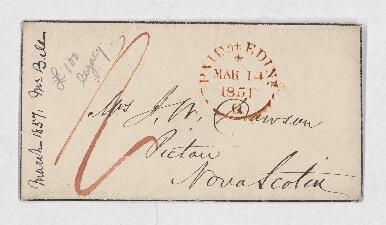 March 1857. Mr Bell
£100
legacy
PAID AT EDINR
MAR 14
1857
G
Mrs J. W. Dawson
Pictou
Nova Scotia